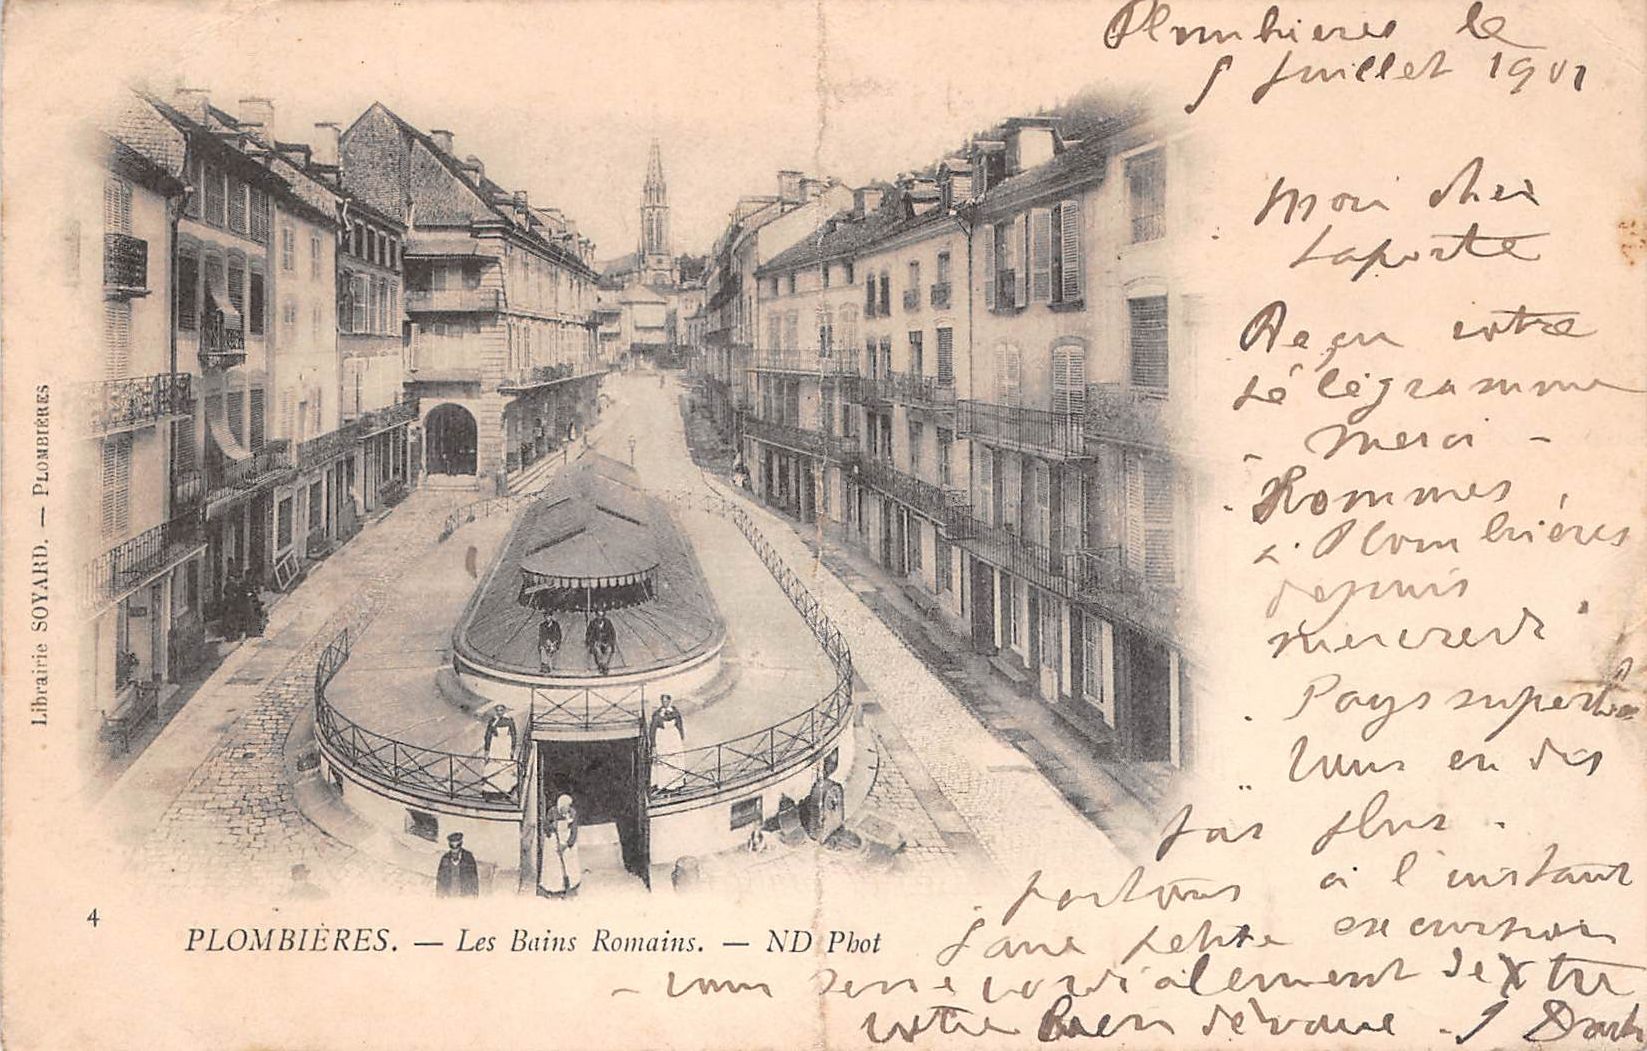 Plombieres le
5 Juillet 1901
Mon cher
Laporte
Reçu votre
télégramme
- merci -
Sommes
à Plombières
depuis
mercredi
Pays superbe
vous en dis
pas plus.
partons à l'instant
faire petite excursion
- vous serre cordialement dextre
votre bien dévoué . J
4
PLOMBIÈRES. — Les Bains Romains. — ND Phot
Librairie SOYARD. — PLOMBIÈRES